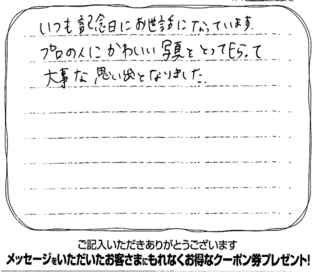 いつも記念日にお世話になっています.
プロの人にかわいい写真をとってもらって
大事な思い出となりました.
ご記入いただきありがとうございます
メッセージをいただいたお客さまにもれなくお得なクーポン券プレゼント!